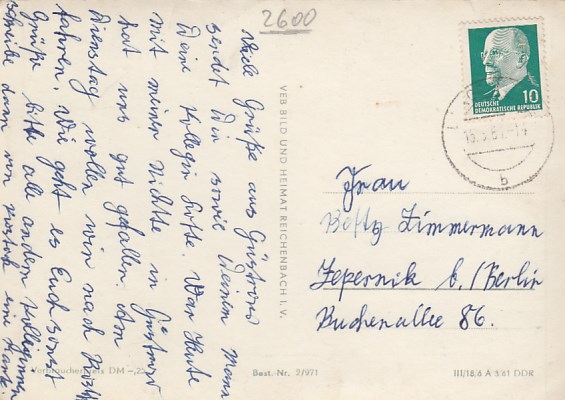 2600
Viele Grüße aus Güstrow
sendet Dir sowie Deinem Mann
Deine Kollegin Lotte. War heute
mit meiner Nichte in Güstrow
hat uns gut gefallen. Am
Dienstag wollen wir nach
fahren. Wie geht es Euch sonst
Grüße bitte alle andern Kolleginnen
schreibe dann von Rostock eine Karte.
VEB BILD UND HEIMAT REICHENBACH I. V.
10
DEUTSCHE
DEMOKRATISCHE REPUBLIK
b
Frau
Zimmermann
Zepernik b./Berlin
Buchenallee 86.
Verbraucherpreis DM -,25
Best.-Nr. 2/971
III/18/6 A 3/61 DDR